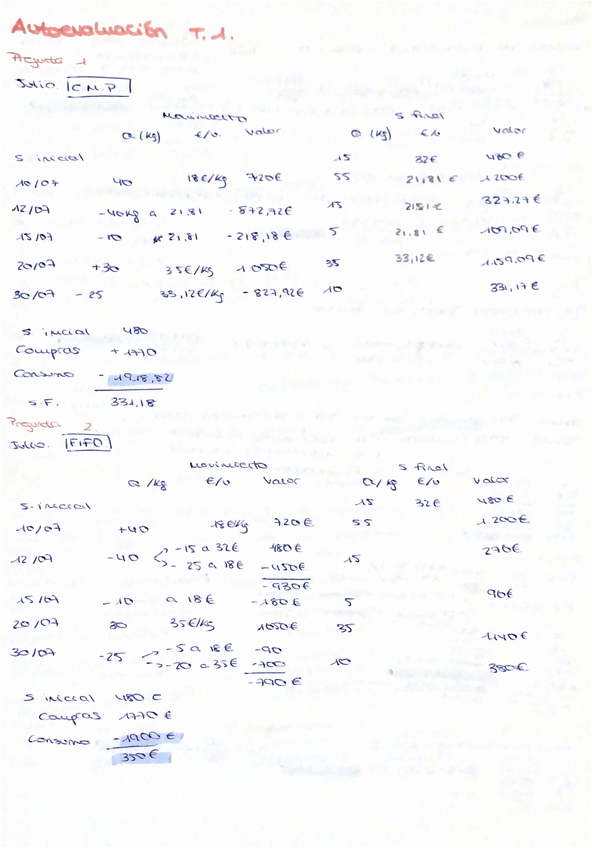 Autoevaluación T.1.
Pregunta 1
Julio. C.M.P
Movimiento S final
Q (Kg) €/u. Valor Q (Kg) €/u Valor
S inicial 15 32€ 480 €
10/07 40 18€/Kg 720€ 55 21,81 € 1.200€
12/07 -40Kg a 21.81 -872,72€ 15 21,81€ 327.27€
15/07 -10 21,81 -218,18€ 5 21.81 € 109,09€
20/07 +30 35€/Kg 1050€ 35 33,12€ 1.159,09€
30/07 -25 33,12€/Kg -827,92€ 10 331,17€
S inicial 480
Compras +1770
Consumo -1918,82
S.F. 331.18
Pregunta 2.
Julio. FIFO
Movimiento S final
Q /Kg €/u Valor Q/Kg €/u Valor
S. inicial 15 32€ 480€
10/07 +40 18€/Kg 720€ 55 1.200€
12/07 -40 -15 a 32€ 480€ 15 270€
- 25 a 18€ -450€
-930€
15/07 -10 a 18€ -180€ 5 90€
20/07 30 35€/Kg 1050€ 35 1140€
30/07 -25 -5 a 18€ -90 10 350€
-20 a 35€ -700
-790€
S inicial 480 €
Compras 1770 €
Consumo -1900 €
350€